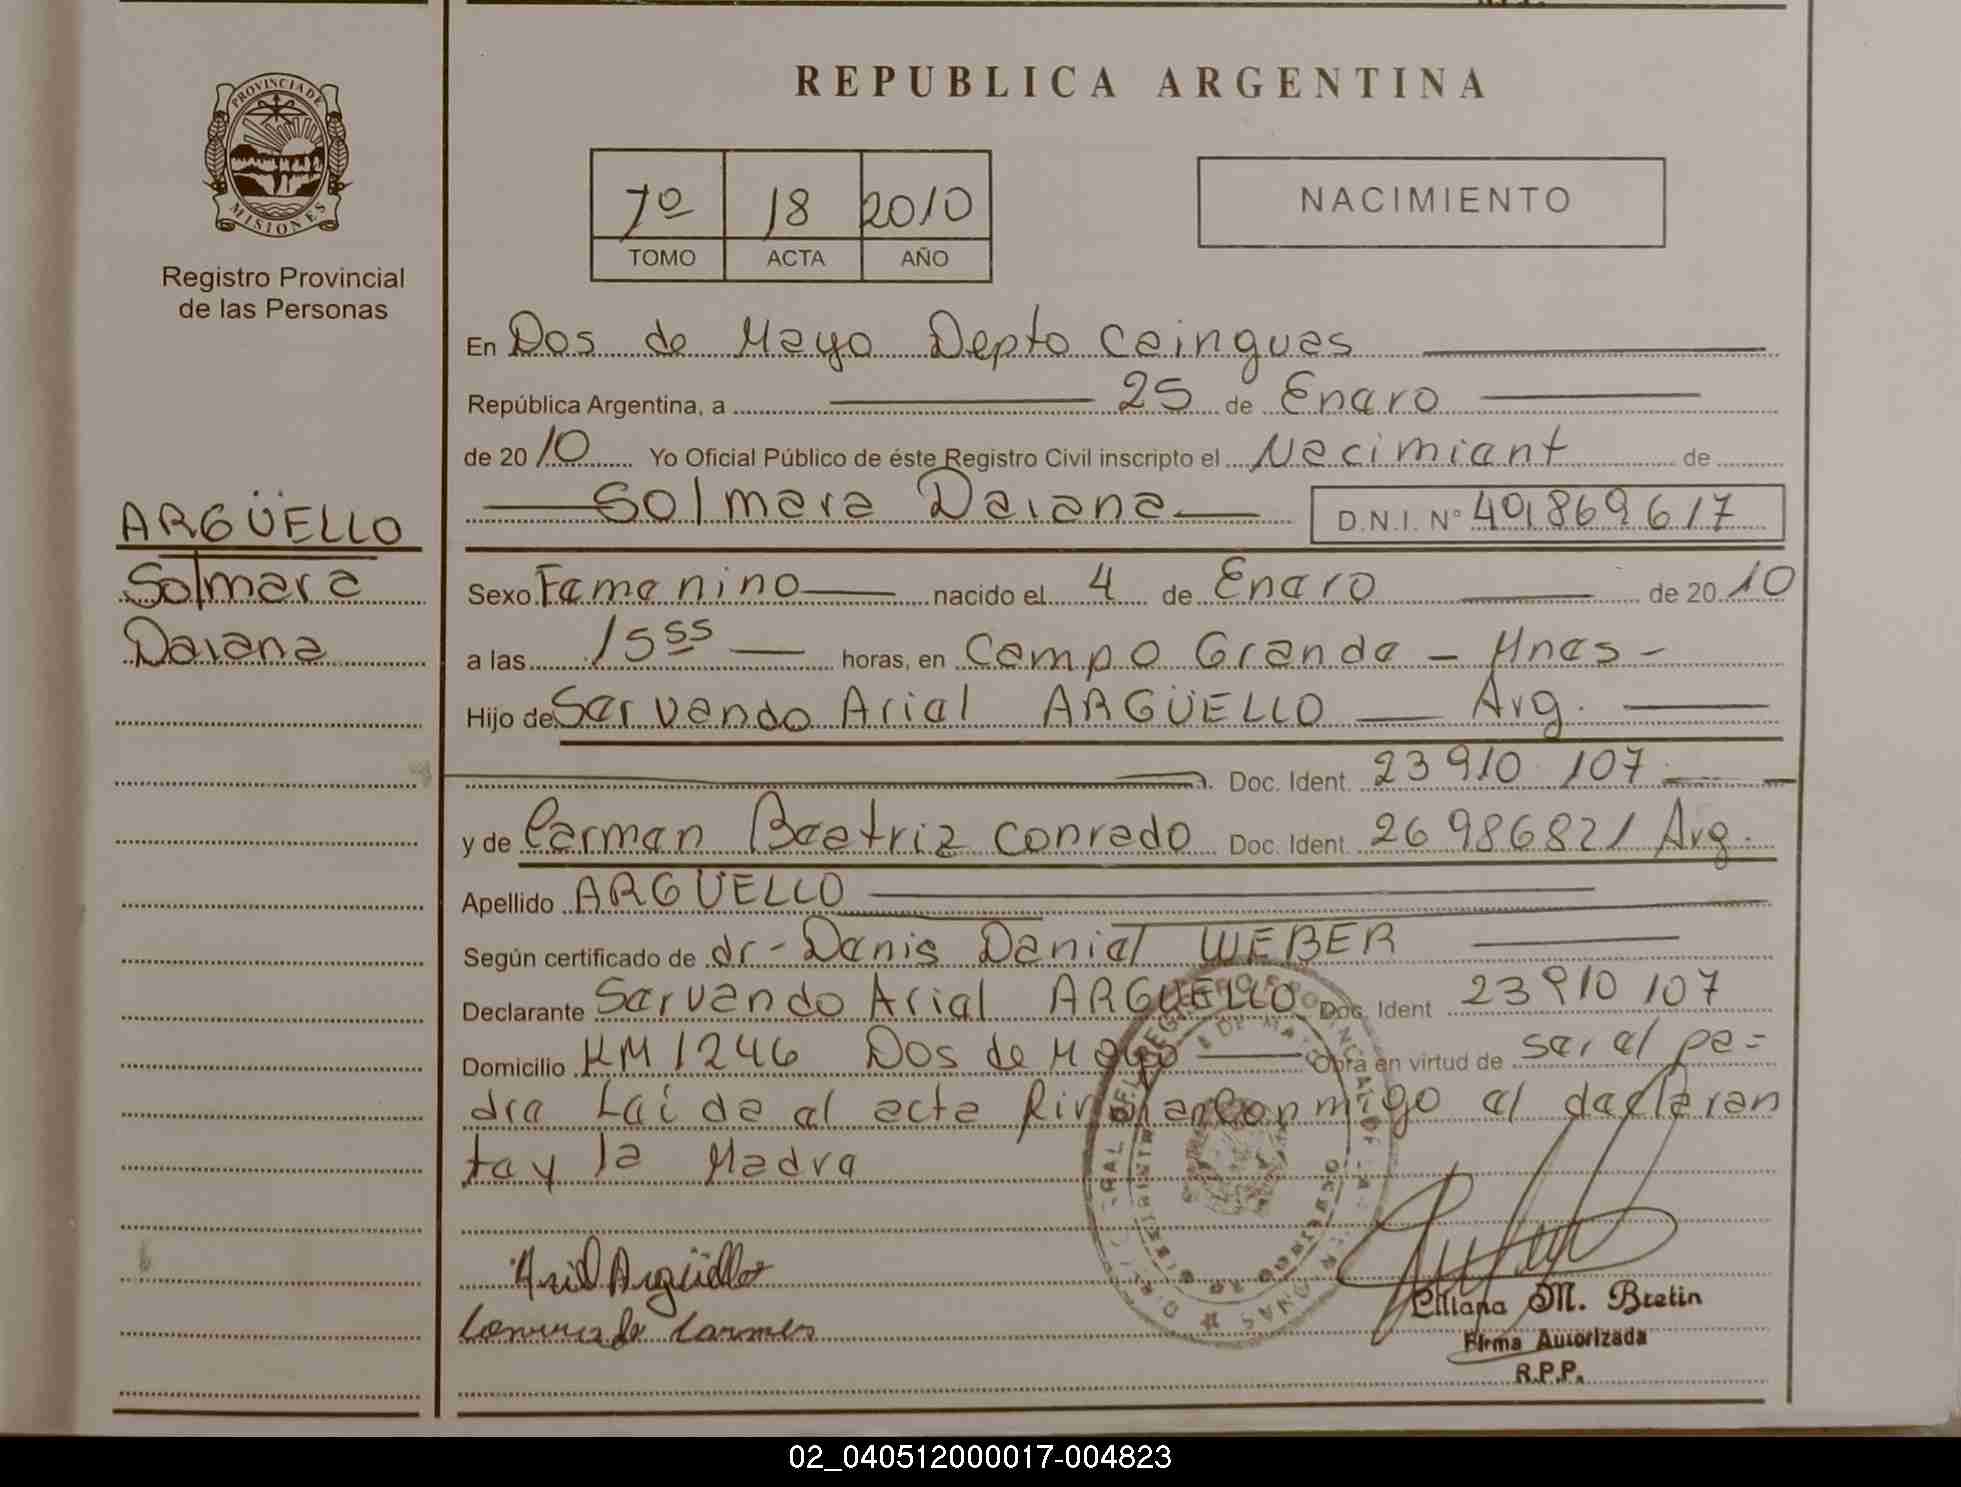 REPUBLICA ARGENTINA
PROVINCIA DE
MISIONES
Registro Provincial
de las Personas
7º 18 2010
TOMO ACTA AÑO
NACIMIENTO
En Dos de Mayo Depto Caingues
República Argentina, a 25 de Enero
de 2010 Yo Oficial Público de éste Registro Civil inscripto el Nacimient de
Solmara Daiana D.N.I. Nº 401869617
ARGÜELLO
Solmara
Daiana
Sexo Femenino nacido el 4 de Enero de 2010
a las 15 55 horas, en Campo Grande - Mnes -
Hijo de Servando Ariel ARGÜELLO Arg.
Doc. Ident. 23 910 107
y de Carmen Beatriz Conrado Doc. Ident. 26 986821 Arg.
Apellido ARGÜELLO
Según certificado de dr - Denis Daniel WEBER
Declarante Servando Ariel ARGÜELLO Doc. Ident 23910 107
Domicilio KM 1246 Dos de Mayo Obra en virtud de ser el pa-
dre Leída el acta firman conmigo el declaran
te y la Madre
Ariel Argüello
Carmen
Liliana M. Bretin
Firma Autorizada
R.P.P.
02_040512000017-004823